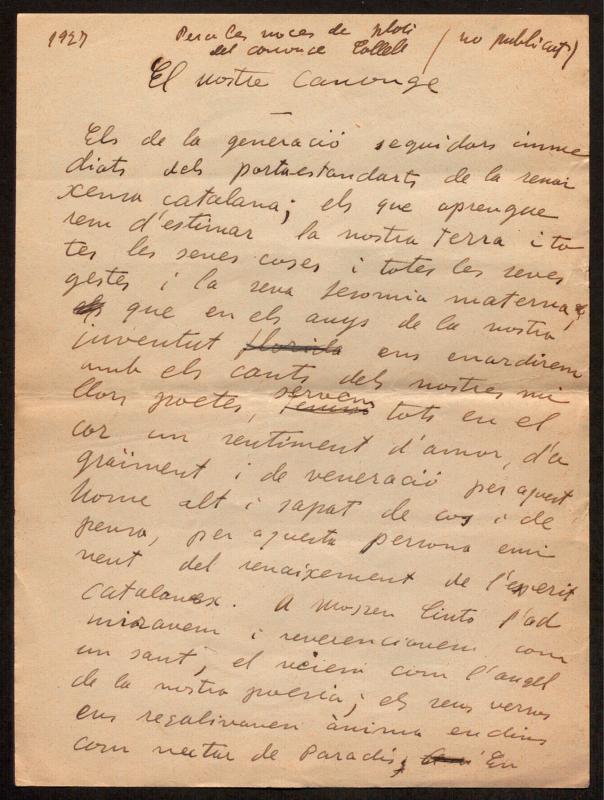 1927
Per a les noces de plata
del canonge Collell (no publicat)
El nostre Canonge
Els de la generació seguidors imme
diats dels portaestandarts de la renai
xensa catalana; els que aprengue
rem d'estimar la nostra Terra i to
tes les seues coses i totes les seves
gestes i la seva fesomia materna,
els que en els anys de la nostra
juventut florida ens enardirem
amb els cants dels nostres mi
llors poetes, servem tots en el
cor un sentiment d'amor, d'a
graïment i de veneració per aquest
home alt i sapat de cos i de
pensa, per aquesta persona emi
nent del renaixement de l'esperit
catalanesc. A Mossen Cinto l'ad
miravem i reverenciavem com
un sant, el veiem com l'angel
de la nostra poesia; els seus versos
ens regalivaven ànima endins
com nectar de Paradís, En